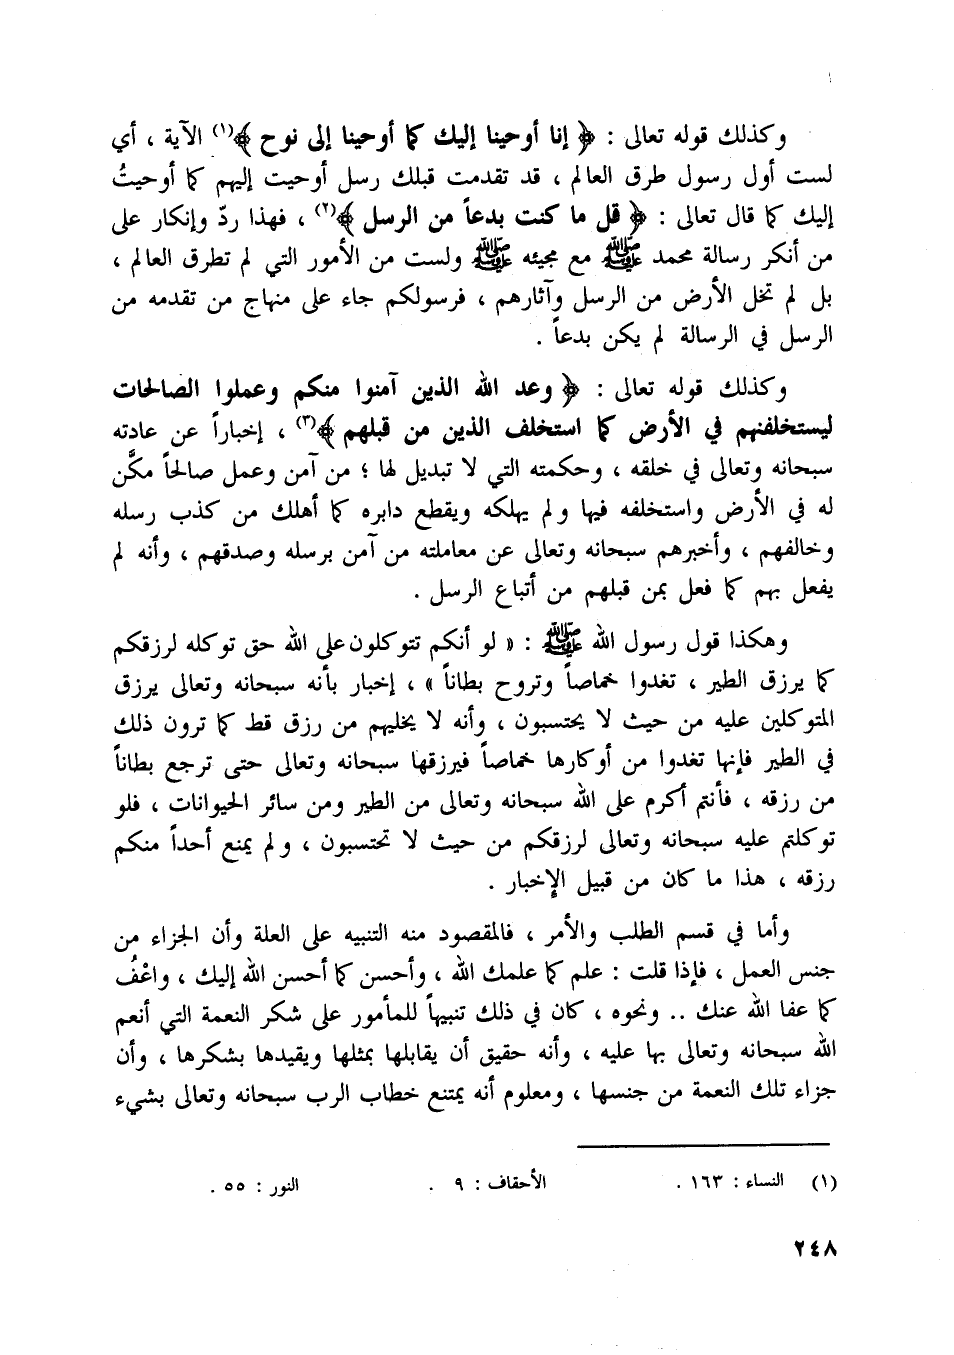 وكذلك قوله تعالى : ﴿ إنا أوحينا إليك كما أوحينا إلى نوح ﴾(١) الآية ، أي
لست أول رسول طرق العالم ، قد تقدمت قبلك رسل أوحيت إليهم كما أوحيتُ
إليك كما قال تعالى : ﴿ قل ما كنت بدعاً من الرسل ﴾(٢) ، فهذا ردّ وإنكار على
من أنكر رسالة محمد ﷺ مع مجيئه ﷺ ولست من الأمور التي لم تطرق العالم ،
بل لم تخل الأرض من الرسل وآثارهم ، فرسولكم جاء على منهاج من تقدمه من
الرسل في الرسالة لم يكن بدعاً .
وكذلك قوله تعالى : ﴿ وعد الله الذين آمنوا منكم وعملوا الصالحات
ليستخلفنهم في الأرض كما استخلف الذين من قبلهم ﴾(٣) ، إخباراً عن عادته
سبحانه وتعالى في خلقه ، وحكمته التي لا تبديل لها ؛ من آمن وعمل صالحاً مكَّن
له في الأرض واستخلفه فيها ولم يهلكه ويقطع دابره كما أهلك من كذب رسله
وخالفهم ، وأخبرهم سبحانه وتعالى عن معاملته من آمن برسله وصدقهم ، وأنه لم
يفعل بهم كما فعل بمن قبلهم من أتباع الرسل .
وهكذا قول رسول الله ﷺ : « لو أنكم تتوكلون على الله حق توكله لرزقكم
كما يرزق الطير ، تغدوا خماصاً وتروح بطاناً » ، إخبار بأنه سبحانه وتعالى يرزق
المتوكلين عليه من حيث لا يحتسبون ، وأنه لا يخليهم من رزق قط كما ترون ذلك
في الطير فإنها تغدوا من أوكارها خماصاً فيرزقها سبحانه وتعالى حتى ترجع بطاناً
من رزقه ، فأنتم أكرم على الله سبحانه وتعالى من الطير ومن سائر الحيوانات ، فلو
توكلتم عليه سبحانه وتعالى لرزقكم من حيث لا تحتسبون ، ولم يمنع أحداً منكم
رزقه ، هذا ما كان من قبيل الإخبار .
وأما في قسم الطلب والأمر ، فالمقصود منه التنبيه على العلة وأن الجزاء من
جنس العمل ، فإذا قلت : علم كما علمك الله ، وأحسن كما أحسن الله إليك ، واعْفُ
كما عفا الله عنك .. ونحوه ، كان في ذلك تنبيهاً للمأمور على شكر النعمة التي أنعم
الله سبحانه وتعالى بها عليه ، وأنه حقيق أن يقابلها بمثلها ويقيدها بشكرها ، وأن
جزاء تلك النعمة من جنسها ، ومعلوم أنه يمتنع خطاب الرب سبحانه وتعالى بشيء
(١) النساء : ١٦٣ . الأحقاف : ٩ . النور : ٥٥ .
٢٤٨